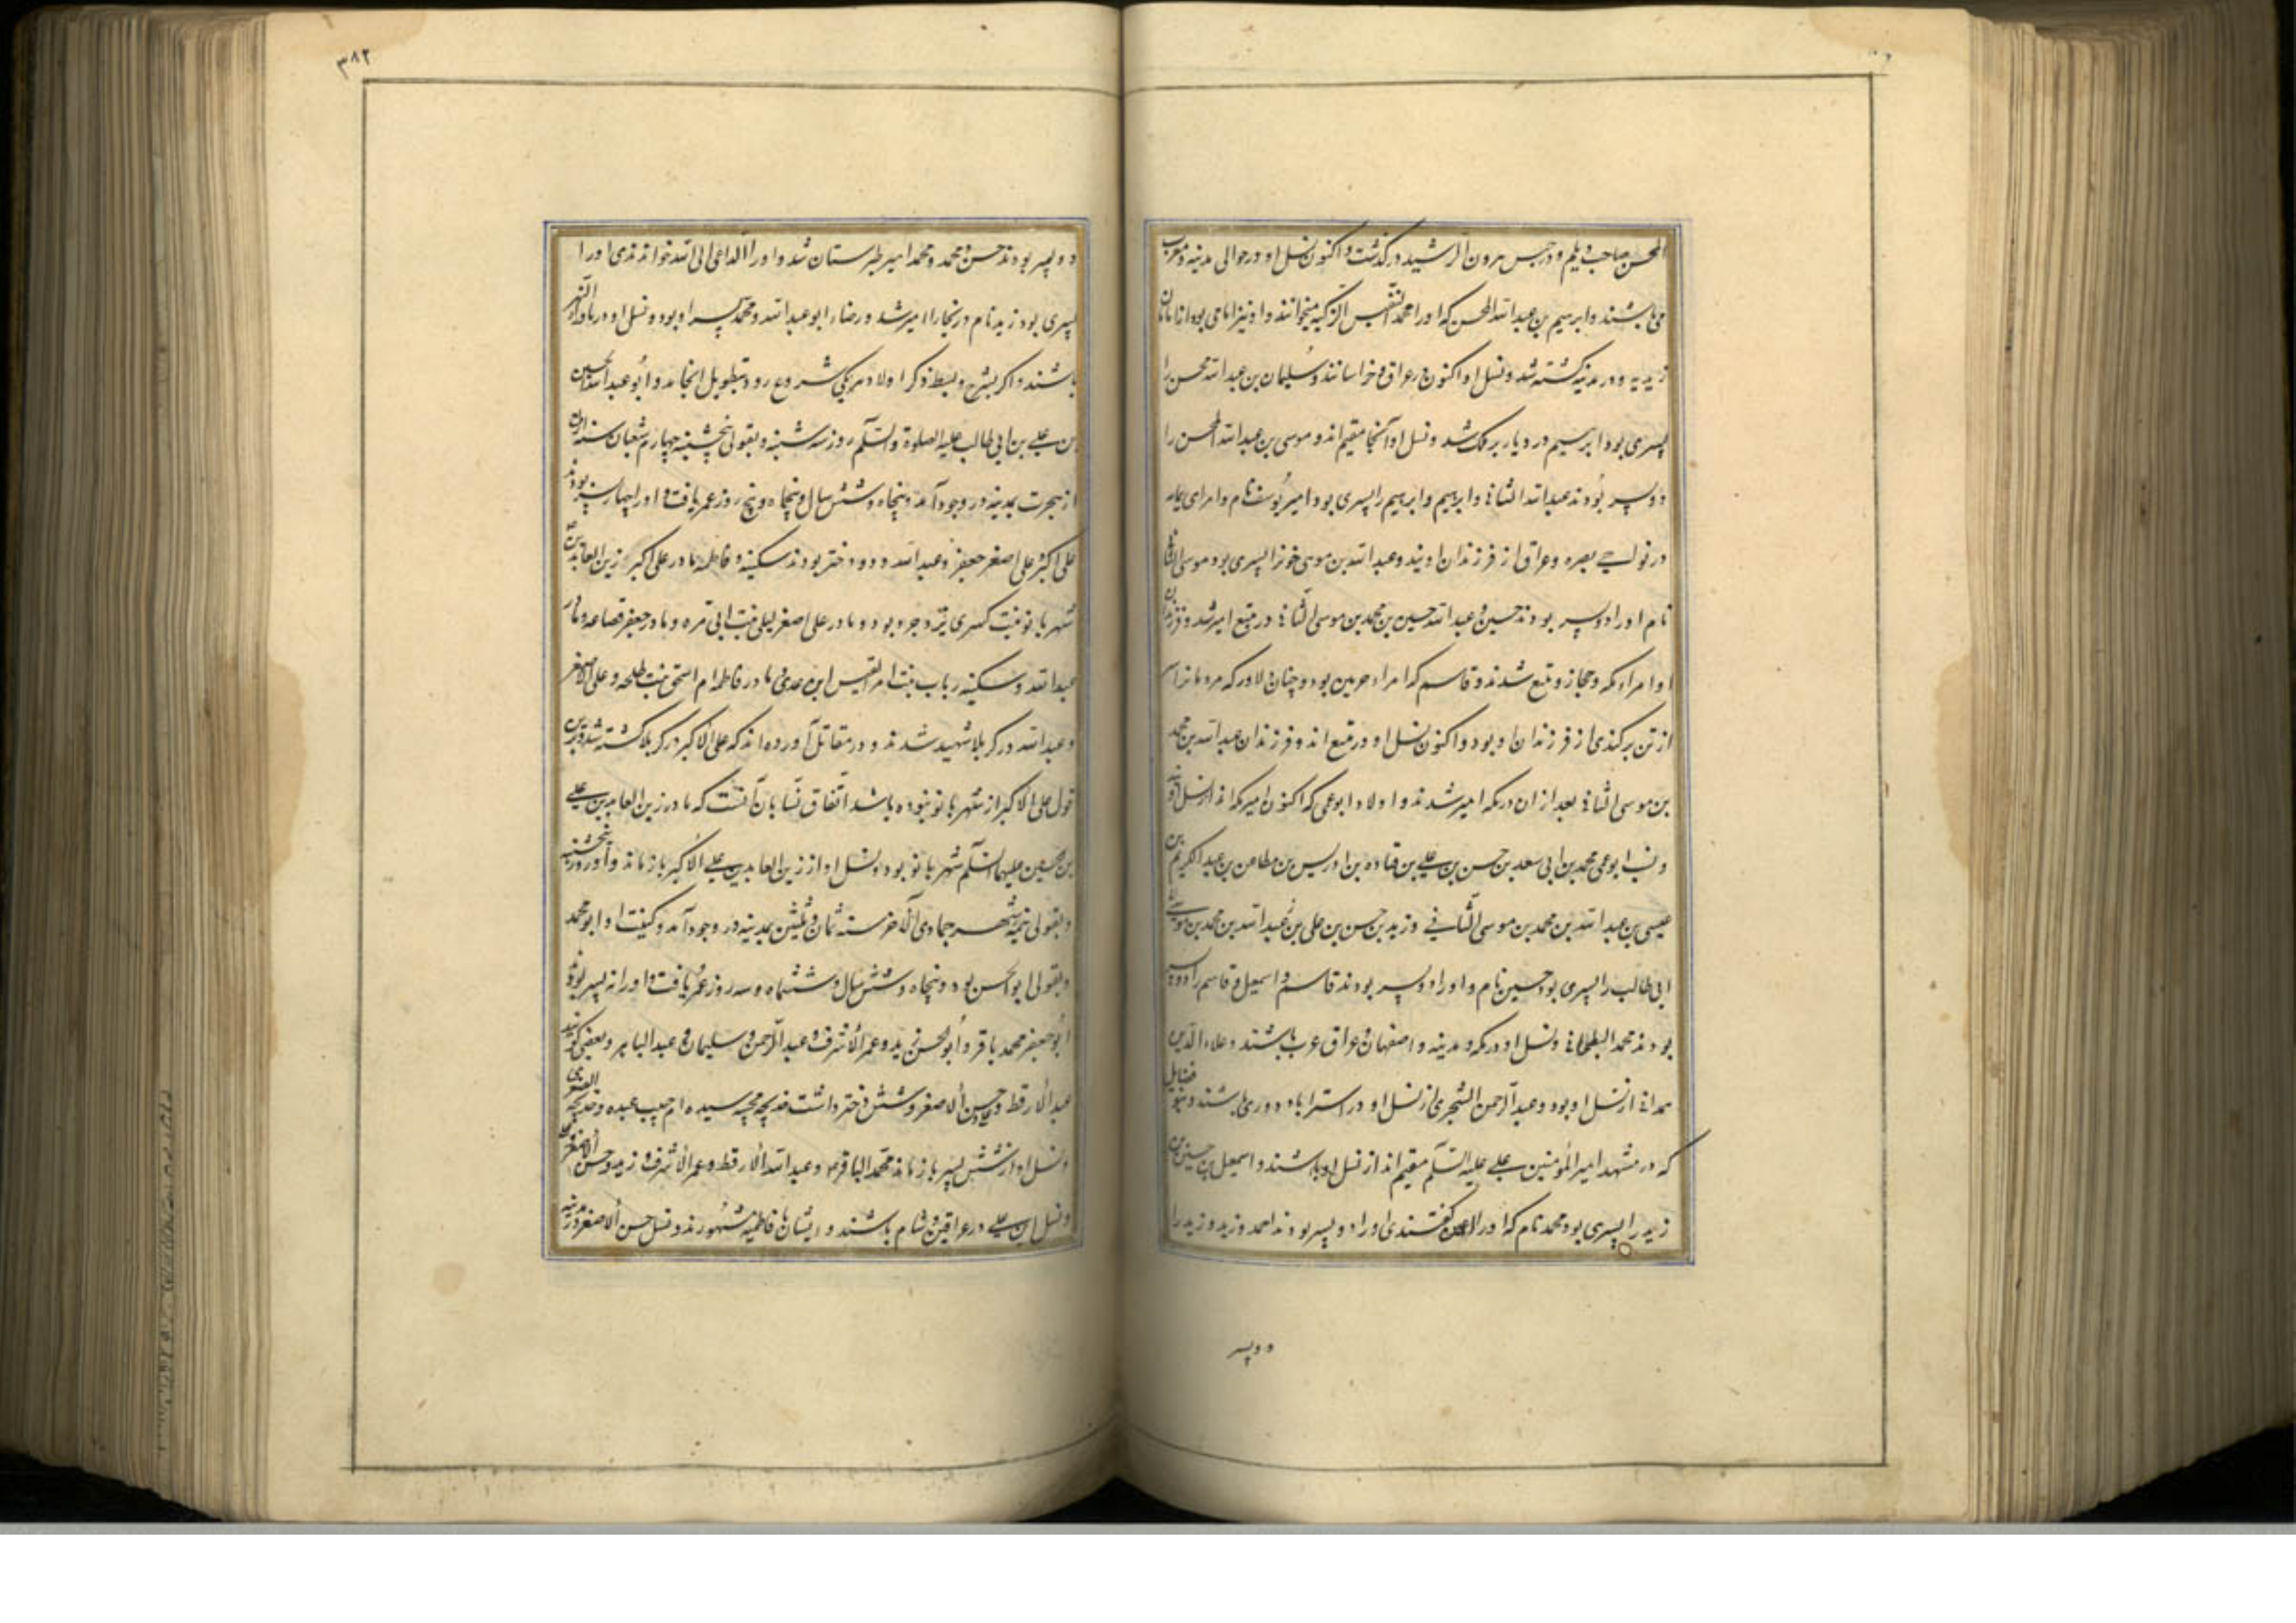 المحسن صاحب دیلم و در حبس هرون الرشید درگذشت و اکنون نسل او در حوالی مدینه و مغرب
می باشند و ابرهیم بن عبد الله المحسن که او را محمد النفس الزکیه میخوانند و او نیز امامی بود از امامان
زیدیه و در مدینه کشته شد و نسل او اکنون در عراق و خراسانند و سلیمان بن عبد الله محسن را
پسری بود ابرهیم در دیار بربر ملک شد و نسل او آنجا مقیم اند و موسی بن عبد الله المحسن را
دو پسر بودند عبد الله الثانی و ابرهیم و ابرهیم را پسری بود امیر یوسف نام و امرای یمامه
در نواحی بصره و عراق از فرزندان اویند و عبد الله بن موسی خود را پسری بود موسی الثانی
نام او را دو پسر بودند حسین و عبد الله حسین بن محمد بن موسی الثانی در ینبع امیر شد و فرزندان
او امراء مکه و حجاز و ینبع شدند و قاسم که امراء حرمین بود و چنان دلاور که مرد ما را سر
از تن برکندی از فرزندان او بود و اکنون نسل او در ینبع اند و فرزندان عبد الله بن محمد
بن موسی الثانی بعد از ان در مکه امیر شدند و اولاد ابو نمی که اکنون امیر مکه اند از نسل اویند
و نسب ابو نمی محمد بن ابی سعد بن حسن بن علی بن قتاده بن ادریس بن مطاعن بن عبد الکریم بن
عیسی بن عبد الله بن محمد بن موسی الثانی و زید بن حسن بن علی بن عبد الله بن محمد بن موسی
ابی طالب را پسری بود حسین نام و او را دو پسر بودند قاسم و اسمعیل و قاسم را دو پسر
بودند محمد البطحانی و نسل او در مکه و مدینه و اصفهان و عراق عرب باشند و علاء الدین
همدانی از نسل او بود و عبد الرحمن الشجری از نسل او در استراباد و ری باشند و بنو فضایل
که در مشهد امیر المؤمنین علی علیه السلام مقیم اند از نسل او باشند و اسمعیل بن حسین بن
زید را پسری بود محمد نام که او را گفتندی او را دو پسر بودند احمد و زید و زید را
دو پسر
۳۸۲
دو پسر بودند حسن و محمد و محمد امیر طبرستان شد و او را الداعی الی الله خواندندی او را
پسری بود زید نام در بخارا امیر شد و رضاء ابو عبد الله و محمد پسر او بود و نسل او در ماوراء النهر
باشند و اگر بشرح و بسط ذکر اولاد هر یکی شروع رود بتطویل انجامد و ابو عبد الله الحسین
بن علی بن ابی طالب علیه الصلوة و السلم روز سه شنبه و بقولی پنجشنبه چهارم شعبان سنه اربع
از هجرت بمدینه در وجود آمد و پنجاه و شش سال و پنجاه و پنج روز عمر یافت و او را چهار پسر بودند
علی اکبر علی اصغر جعفر و عبد الله و دو دختر بودند سکینه و فاطمه مادر علی اکبر زین العابدین
شهر بانو بنت کسری یزدجرد بود و مادر علی اصغر لیلی بنت ابی مره و مادر جعفر قضاعه و مادر
عبد الله و سکینه رباب بنت امرء القیس ابن عدی و مادر فاطمه ام اسحق بنت طلحه و علی الاصغر
و عبد الله در کربلا شهید شدند و در مقاتل آورده اند که علی الاکبر در کربلا کشته شد و برین
قول علی الاکبر از شهر بانو نبوده باشد اتفاق نسابان آنست که مادر زین العابدین علی
بن الحسین علیهما السلم شهر بانو بود و نسل او از زین العابدین علی الاکبر باز ماند و او روز پنجشنبه
و بقولی نیمه شهر جمادی الآخر سنه ثمان و ثلثین بمدینه در وجود آمد و کنیت او ابو محمد
و بقولی ابو الحسن بود و پنجاه و شش سال و ششماه و سه روز عمر یافت و او را نه پسر بودند
ابو جعفر محمد باقر و ابو الحسن زید و عمر الاشرف و عبد الرحمن و سلیمان و عبد الباهر و بعضی گویند
عبد الارقط و حسن الاصغر و شش دختر داشت خدیجه سیده ام حبیب عبده و خدیجه الصغری
و نسل او از شش پسر باز ماند محمد الباقر و عبد الله الارقط و عمر الاشرف و زید و حسن الاصغر
و نسل ابن علی در عراقین و شام باشند و ایشان بافاطمیه مشهورند و نسل حسن الاصغر در مدینه